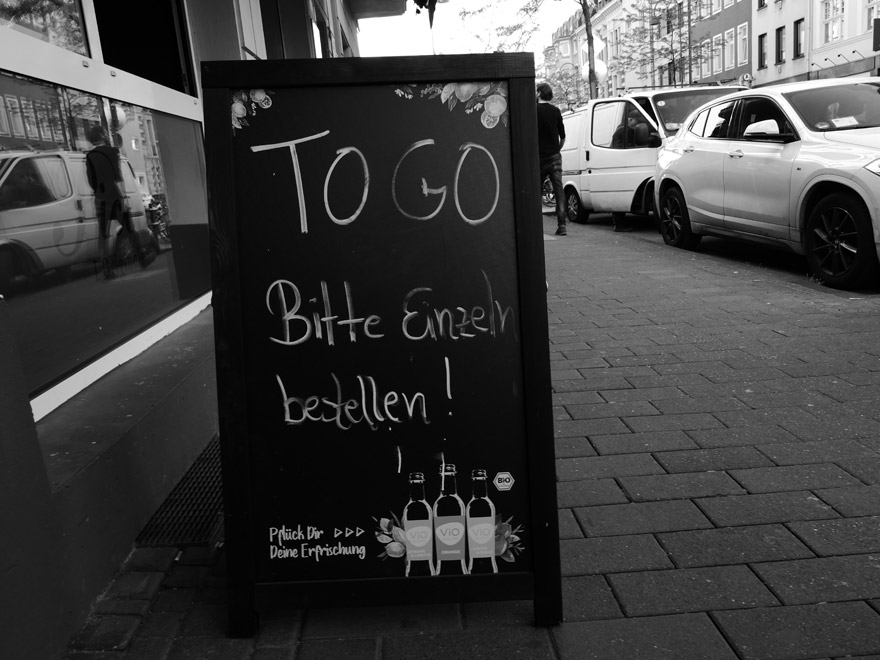 TO GO
Bitte Einzeln
bestellen!
BiO
Pflück Dir
Deine Erfrischung
ViO ViO ViO